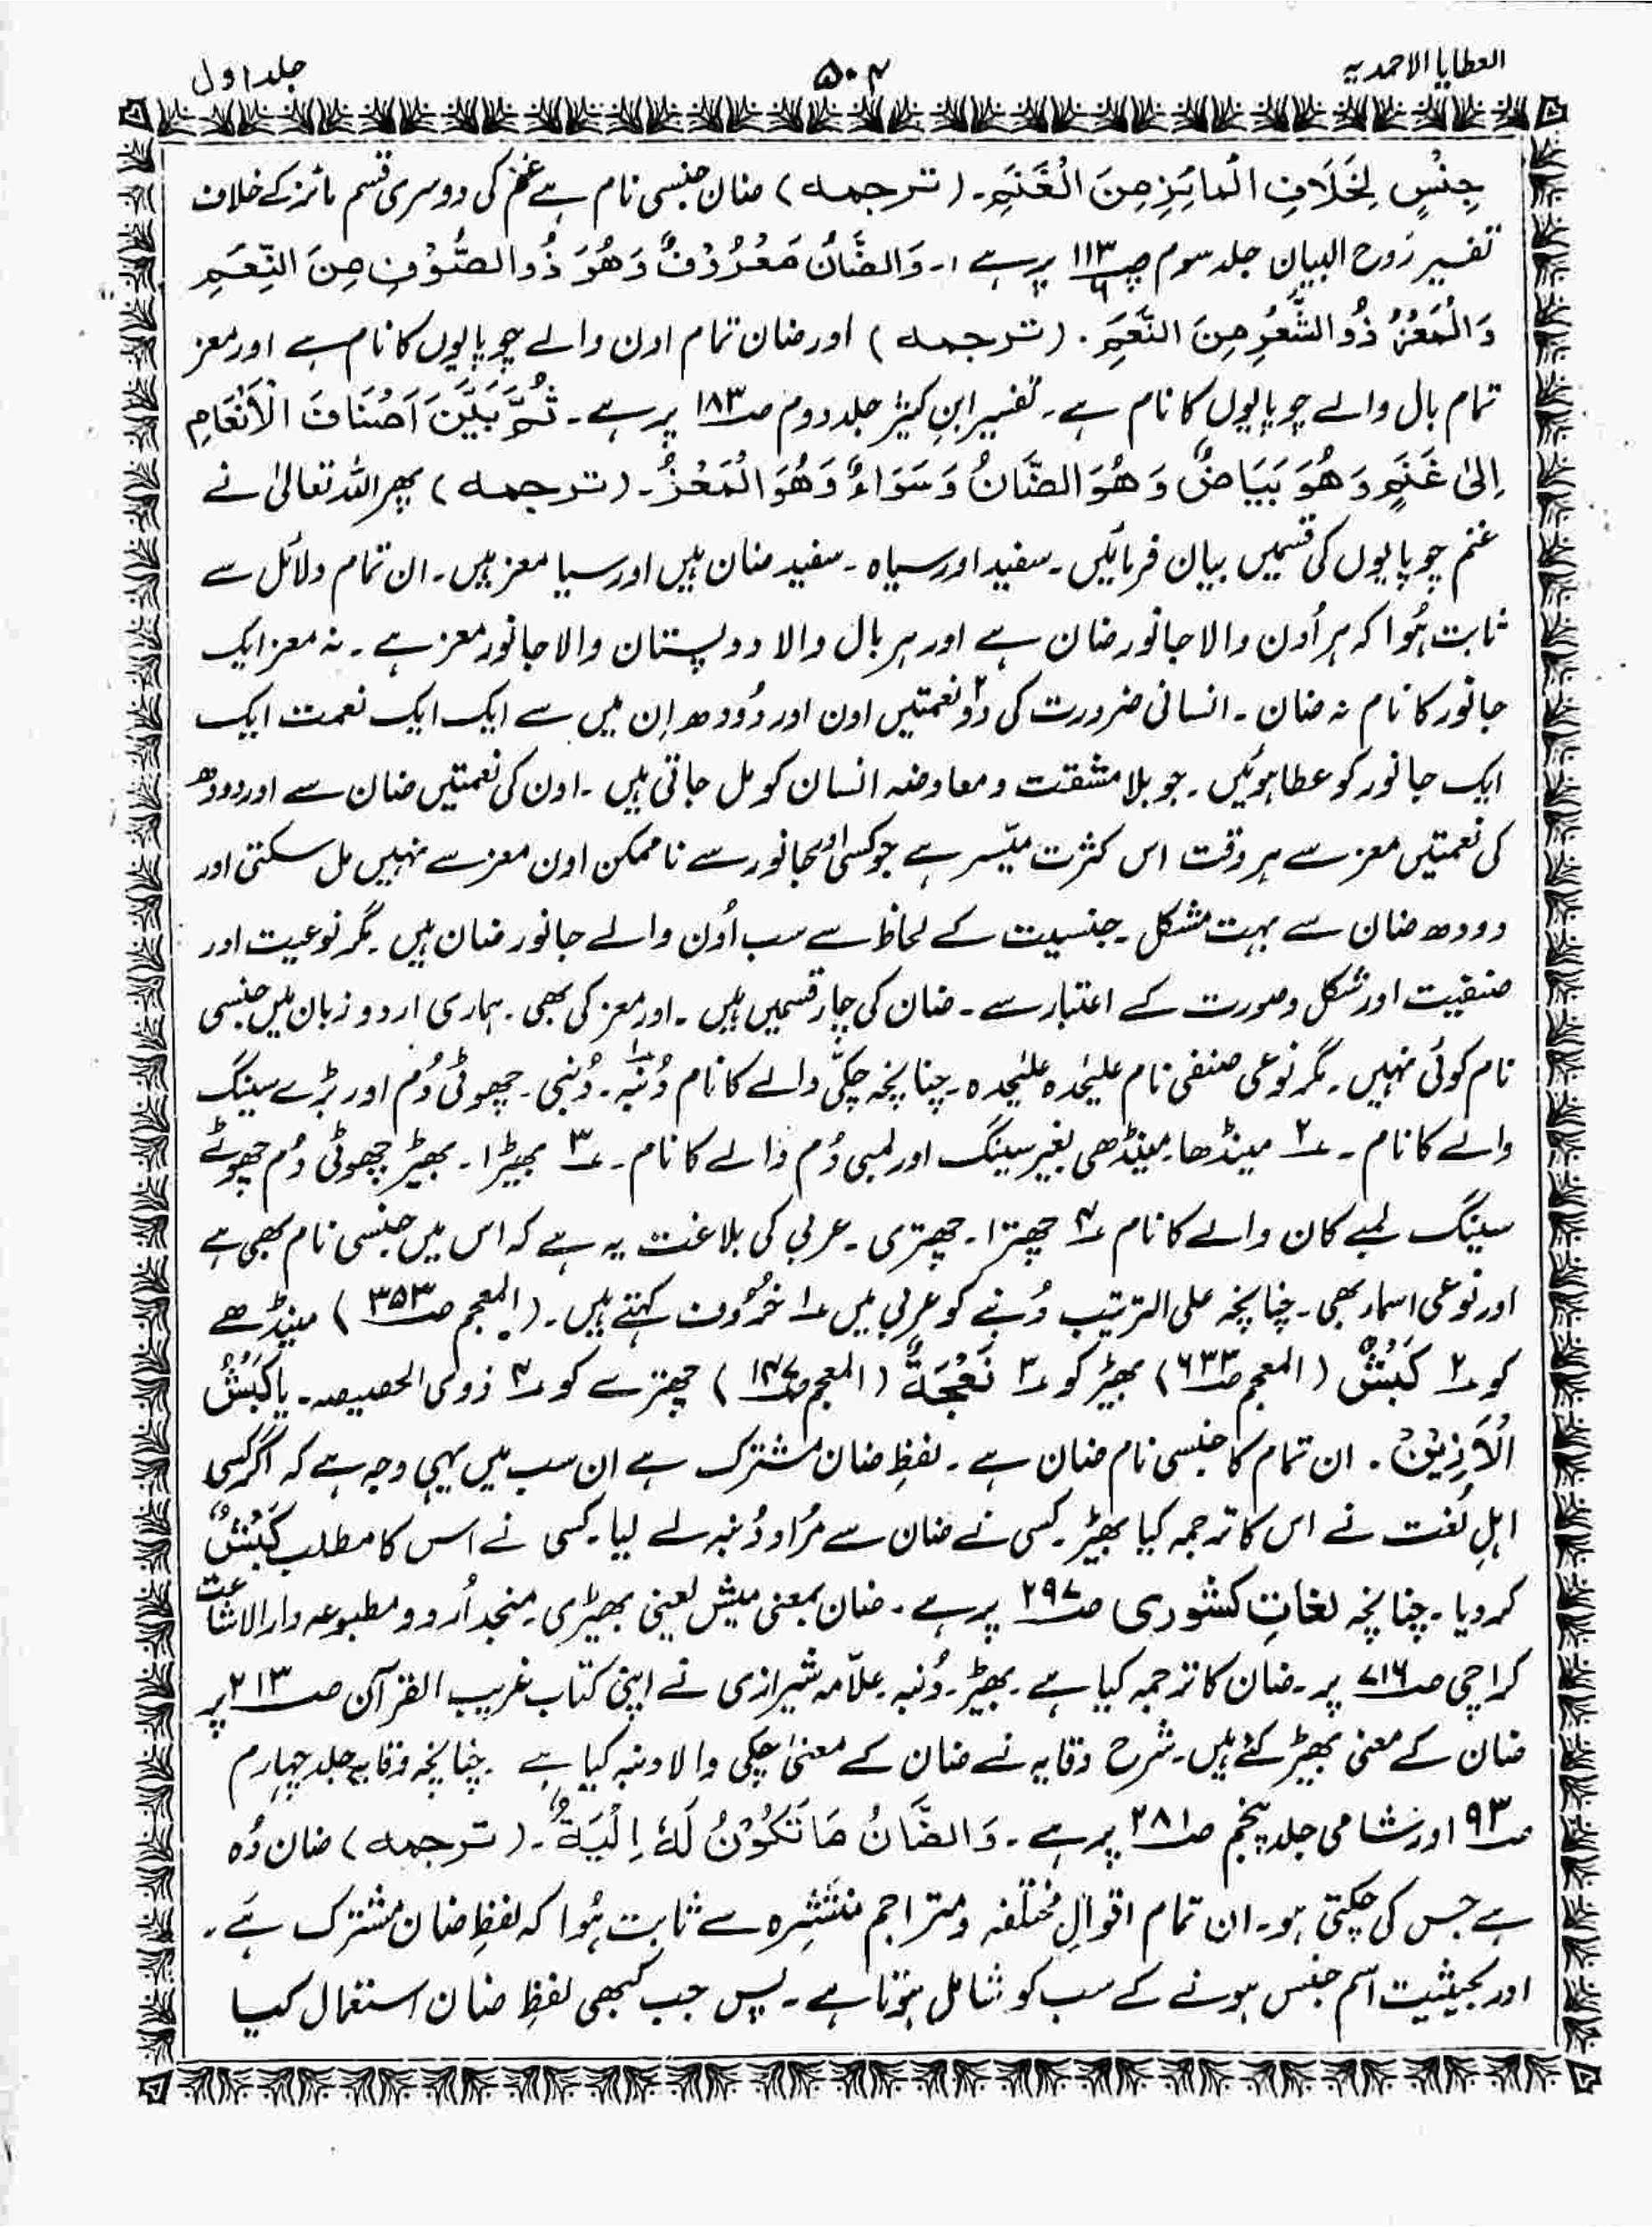 العطایا الاحمدیہ
۵۰۴
جلد اول
جِنْسٍ لِخَلَافِ الْمَائِزِ مِنَ الْغَنَمِ۔ (ترجمہ) ضان جنسی نام ہے غنم کی دوسری قسم مائز کے خلاف
تفسیر رُوح البیان جلد سوم صــ۱۱۳ پر ہے :۔ وَالضَّانُ مَعْرُوْفٌ وَهُوَ ذُوالصُّوْفِ مِنَ النِّعَمِ
وَالْمَعْزُ ذُوالشَّعْرِ مِنَ النَّعَمِ۔ (ترجمہ) اور ضان تمام اون والے چوپایوں کا نام ہے اور معز
تمام بال والے چوپایوں کا نام ہے۔ تفسیر ابنِ کثیر جلد دوم صــ۱۸۳ پر ہے۔ ثُمَّ بَيَّنَ اَصْنَافَ الْاَنْعَامِ
اِلیٰ غَنَمٍ وَهُوَ بَيَاضٌ وَهُوَ الضَّانُ وَسَوَاءٌ وَهُوَ الْمَعْزُ۔ (ترجمہ) پھر اللہ تعالیٰ نے
غنم چوپایوں کی قسمیں بیان فرمائیں۔ سفید اور سیاہ۔ سفید ضان ہیں اور سیا معز ہیں۔ ان تمام دلائل سے
ثابت ہُوا کہ ہر اُون والا جانور ضان ہے اور ہر بال والا دو پستان والا جانور معز ہے۔ نہ معز ایک
جانور کا نام نہ ضان۔ انسانی ضرورت کی دو۲ نعمتیں اون اور دُودھ اِن میں سے ایک ایک نعمت ایک
ایک جانور کو عطا ہوئیں۔ جو بلا مشقت و معاوضہ انسان کو مل جاتی ہیں۔ اون کی نعمتیں ضان سے اور دودھ
کی نعمتیں معز سے ہر وقت اس کثرت میّسر ہے جو کسی اور جانور سے ناممکن اون معز سے نہیں مل سکتی اور
دودھ ضان سے بہت مشکل۔ جنسیت کے لحاظ سے سب اُون والے جانور ضان ہیں۔ مگر نوعیت اور
صنفیت اور شکل و صورت کے اعتبار سے۔ ضان کی چار قسمیں ہیں۔ اور معز کی بھی۔ ہماری اردو زبان میں جنسی
نام کوئی نہیں۔ مگر نوعی صنفی نام علیٰحدہ علیٰحدہ۔ چنانچہ چکّی والے کا نام ؁۱ دُنبہ۔ دُنبی۔ چھوٹی دُم اور بڑے سینگ
والے کا نام۔ ؁۲ مینڈھا۔ مینڈھی بغیر سینگ اور لمبی دُم والے کا نام۔ ؁۳ بھیڑا۔ بھیڑ چھوٹی دُم چھوٹے
سینگ لمبے کان والے کا نام ؁۴ چھترا۔ چھتری۔ عربی کی بلاغت یہ ہے کہ اس میں جنسی نام بھی ہے
اور نوعی اسماء بھی۔ چنانچہ علی الترتیب دُنبے کو عربی میں ؁۱ خروف کہتے ہیں۔ (المعجم صــ۳۵۳) مینڈھے
کو ؁۲ کَبْشٌ (المعجم صــ۶۳۳) بھیڑ کو ؁۳ نَعْجَةٌ (المعجم) چھترے کو ؁۴ ذوی الحصیصہ۔ یا کَبْشُ
الْاَذِیْنْ۔ ان تمام کا جنسی نام ضان ہے۔ لفظِ ضان مشترک ہے ان سب میں یہی وجہ ہے کہ اگر کسی
اہلِ لغت نے اس کا ترجمہ کیا بھیڑ۔ کسی نے ضان سے مُراد دُنبہ لے لیا۔ کسی نے اس کا مطلب کَبْشٌ
کردیا۔ چنانچہ لغاتِ کشوری صــ۲۹۷ پر ہے۔ ضان بمعنی میش یعنی بھیڑی۔ منجد اُردو مطبوعہ دارالاشاعت
کراچی صــ۷۱۶ پر۔ ضان کا ترجمہ کیا ہے۔ بھیڑ۔ دُنبہ۔ علّامہ شیرازی نے اپنی کتاب غریب القرآن صــ۲۱۳ پر
ضان کے معنی بھیڑ کئے ہیں۔ شرح وقایہ نے ضان کے معنیٰ چکی والا دنبہ کیا ہے۔ چنانچہ وقایہ جلد چہارم
صــ۹۳ اور شامی جلد پنجم صــ۲۸۱ پر ہے۔ وَالضَّانُ مَا تَكُوْنُ لَهٗ اِلْيَةٌ۔ (ترجمہ) ضان وُہ
ہے جس کی چکتی ہو۔ ان تمام اقوالِ مختلفہ و متراجم منتشرہ سے ثابت ہُوا کہ لفظِ ضان مشترک ہے۔
اور بحیثیت اسم جنس ہونے کے سب کو شامل ہوتا ہے۔ پس جب کبھی لفظِ ضان استعمال کیا